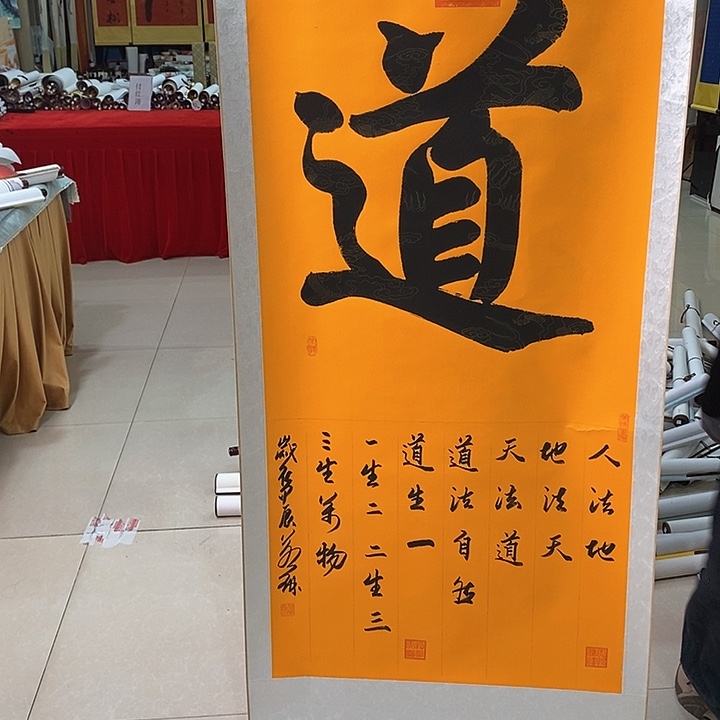 道
人法地
地法天
天法道
道法自然
道生一
一生二二生三
三生万物
岁在甲辰